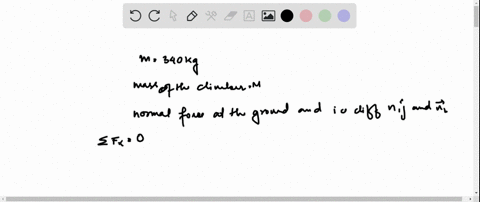 m = 340 kg
mass of the climber = M
normal force at the ground and is diff n₁j and n⃗₂
ΣFₓ = 0